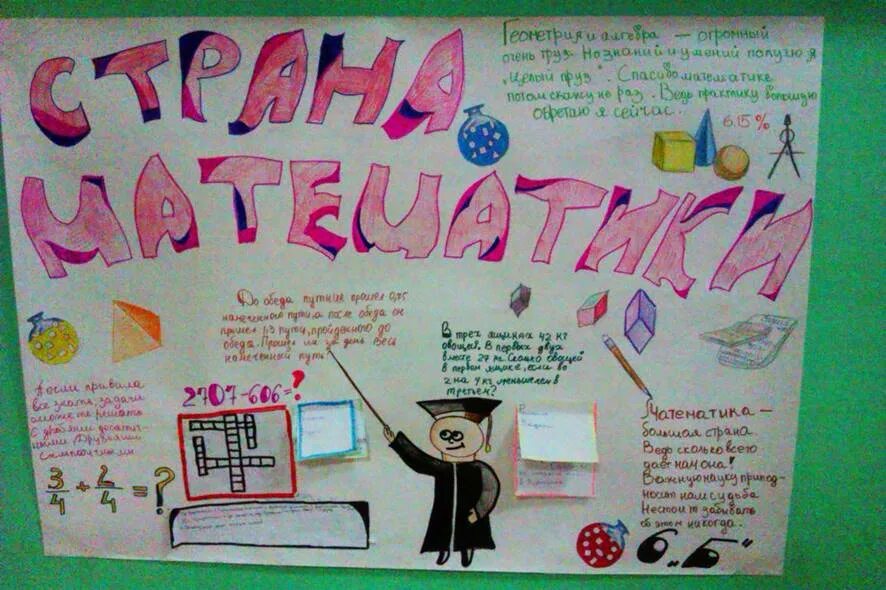 СТРАНА
МАТЕМАТИКИ
Геометрия и алгебра — огромный
очень труд. Но знаний и умений получу я
"Целый груз". Спасибо математике
потом скажу не раз. Ведь практику большую
обретаю я сейчас.
6.15 %
До обеда путник прошел 0,75
намеченного пути, а после обеда он
прошел 1/3 пути, пройденного до
обеда. Прошел ли за день весь
намеченный путь?
В трех ящиках 42 кг
овощей. В первых двух
вместе 27 кг. Сколько овощей
в первом ящике, если во
2 на 4 кг меньше чем в
третьем?
А если правила
все знать, задачи
сможете решать
С дробями десятич-
ными
2707-606=?
3/4 + 2/4 = ?
Математика —
большая страна.
Ведь сколько всего
дает нам она!
Важную науку препод-
носит нам судьба
Не стоит забывать
об этом никогда.
6 „Б"